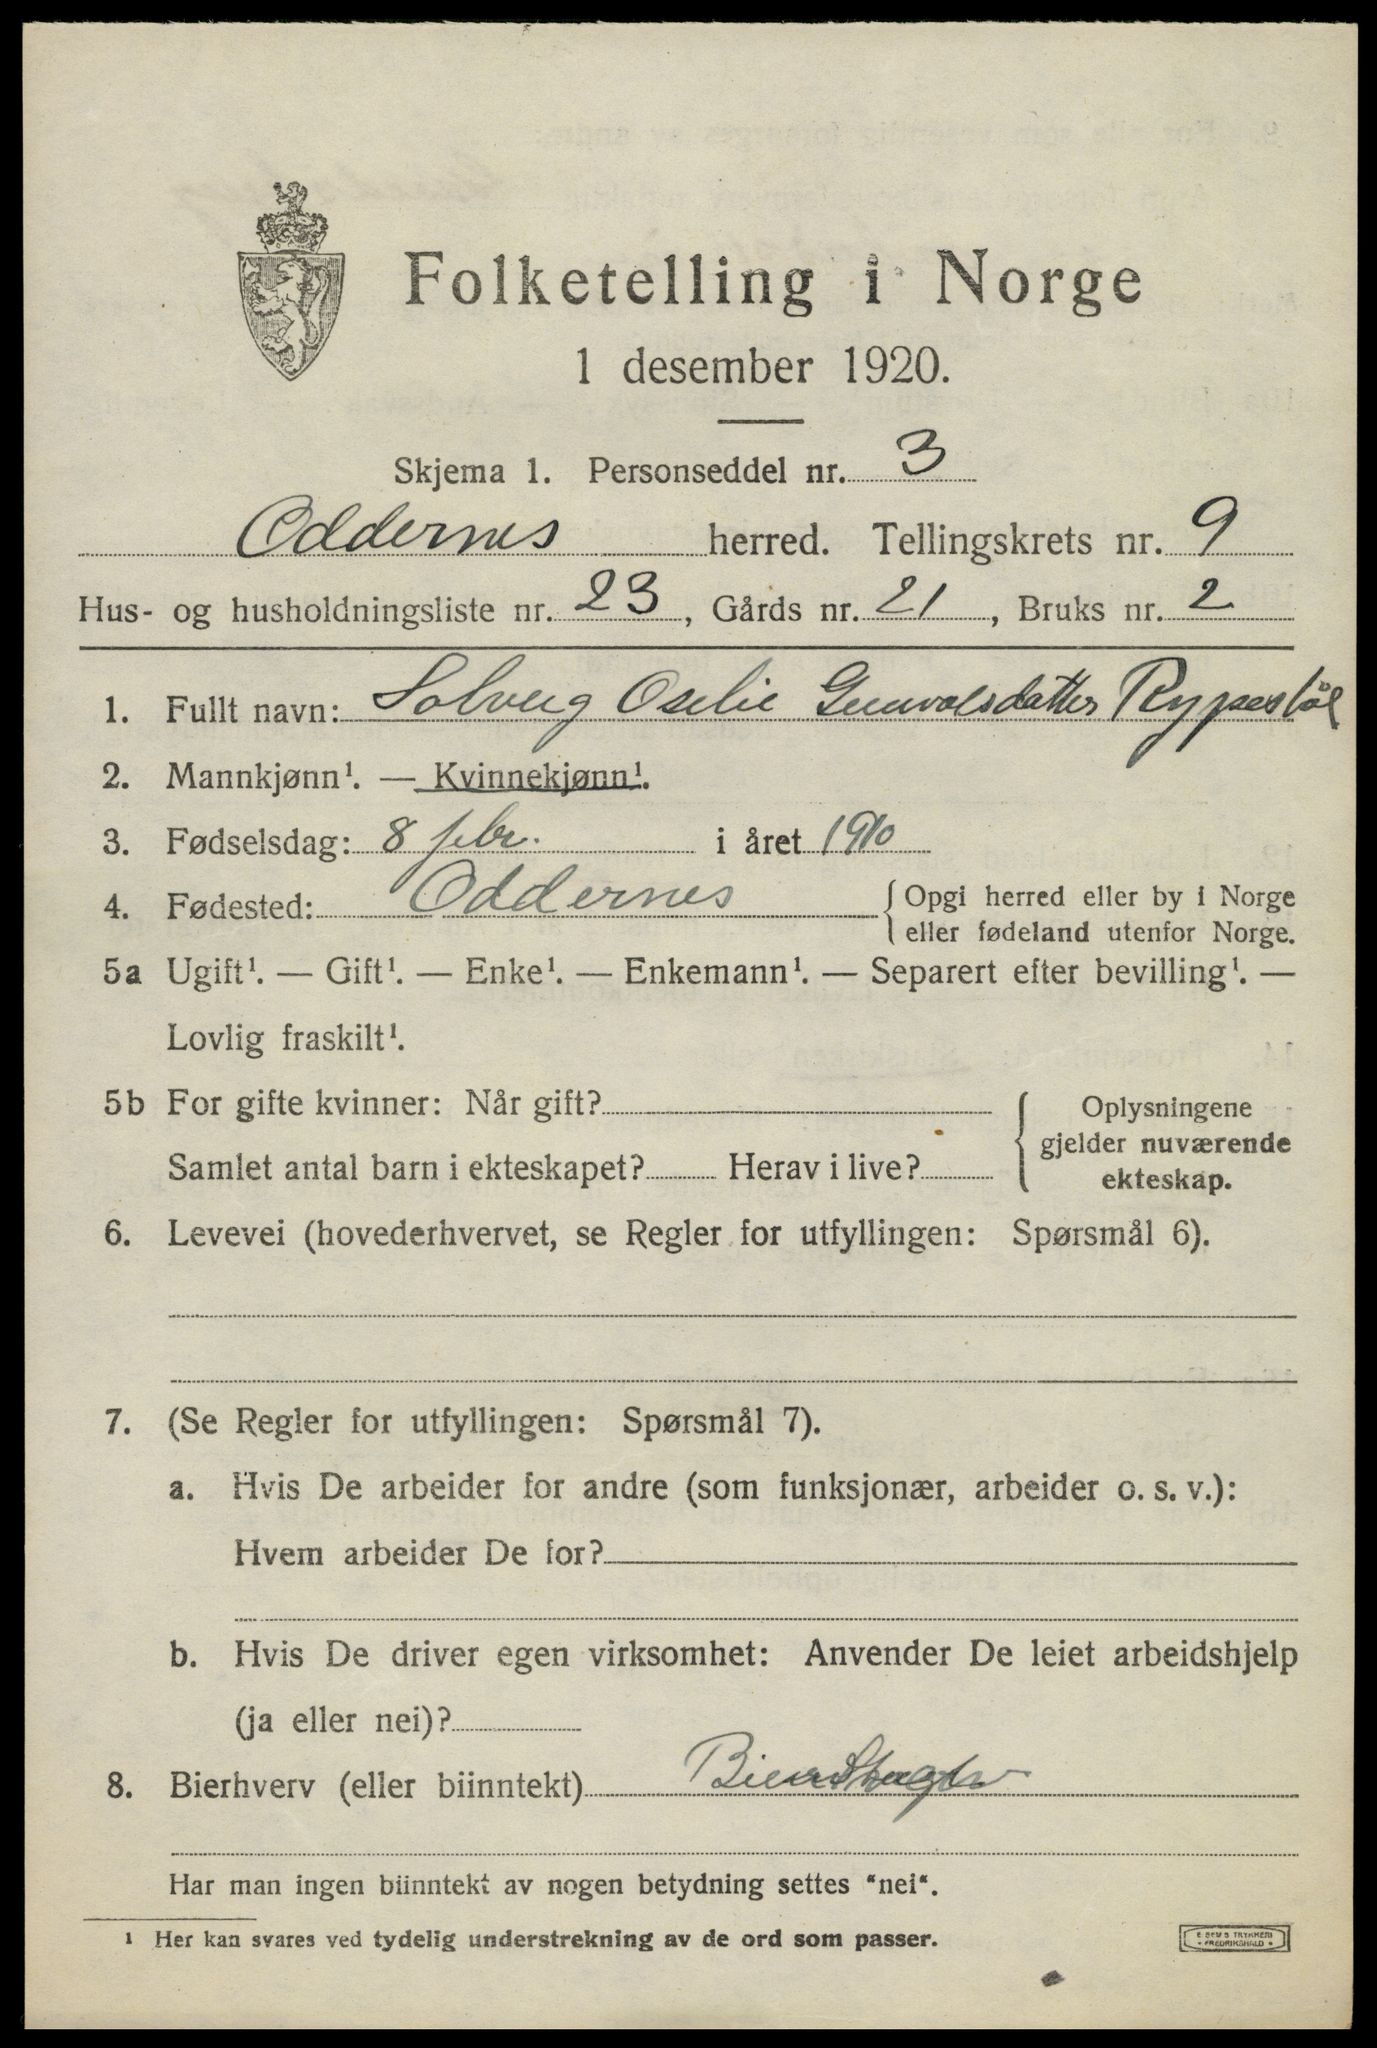 Folketelling i Norge
1 desember 1920.
Skjema 1. Personseddel nr. 3
Oddernes herred. Tellingskrets nr. 9
Hus- og husholdningsliste nr. 23, Gårds nr. 21, Bruks nr. 2
1. Fullt navn: Solveig Oselie Gunvalsdatter Rypestøl
2. Mannkjønn¹. — Kvinnekjønn¹.
3. Fødselsdag: 8 febr. i året 1910
4. Fødested: Oddernes { Opgi herred eller by i Norge
eller fødeland utenfor Norge.
5a Ugift¹. — Gift¹. — Enke¹. — Enkemann¹. — Separert efter bevilling¹. —
Lovlig fraskilt¹.
5b For gifte kvinner: Når gift?
Samlet antal barn i ekteskapet? Herav i live?
{ Oplysningene
gjelder nuværende
ekteskap.
6. Levevei (hovederhvervet, se Regler for utfyllingen: Spørsmål 6).
7. (Se Regler for utfyllingen: Spørsmål 7).
a. Hvis De arbeider for andre (som funksjonær, arbeider o. s. v.):
Hvem arbeider De for?
b. Hvis De driver egen virksomhet: Anvender De leiet arbeidshjelp
(ja eller nei)?
8. Bierhverv (eller biinntekt)
Har man ingen biinntekt av nogen betydning settes "nei".
¹ Her kan svares ved tydelig understrekning av de ord som passer.
E. SEM'S TRYKKERI
FREDRIKSHALD